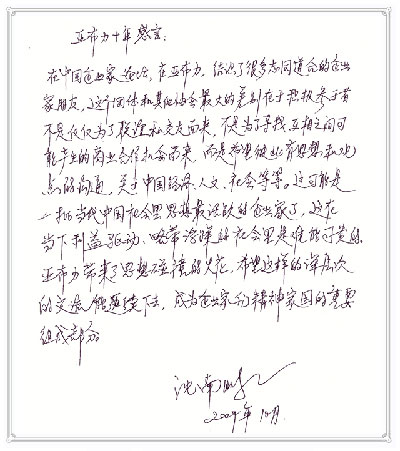 亚布力十年感言:
在中国企业家论坛，在亚布力，结识了很多志同道合的企业
家朋友，这个团体和其他协会最大的差别在于积极参与者
不是仅仅为了联谊和交友而来，不是为了寻找互相之间可
能产生的商业合作机会而来，而是希望彼此有思想和观
点的沟通，关于中国经济、人文、社会等等。这可能是
一批当代中国社会里思想最活跃的企业家了，这在
当下利益驱动、略带浮躁的社会里是难能可贵的。
亚布力带来了思想碰撞的火花，希望这样的深层次
的交流能延续下去，成为企业家们精神家园的重要
组成部分。
沈南鹏
2009年10月